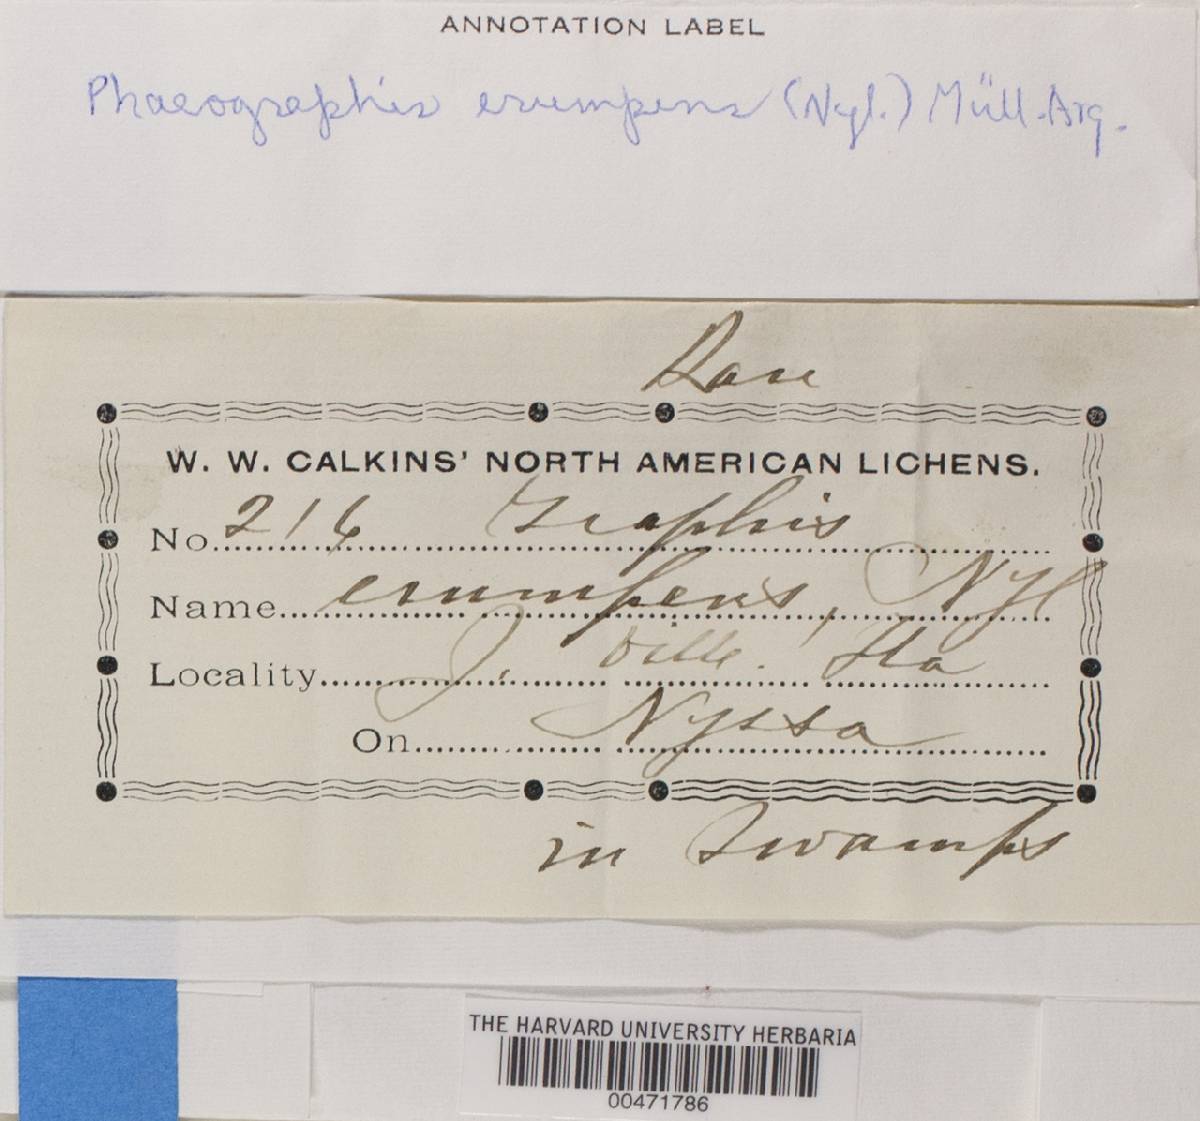 ANNOTATION LABEL
Phaeographis erumpens (Nyl.) Müll. Arg.
Rare
W. W. CALKINS' NORTH AMERICAN LICHENS.
No. 216 Graphis
Name erumpens, Nyl
Locality J. Ville. Fla
On Nyssa
in Swamps
THE HARVARD UNIVERSITY HERBARIA
00471786